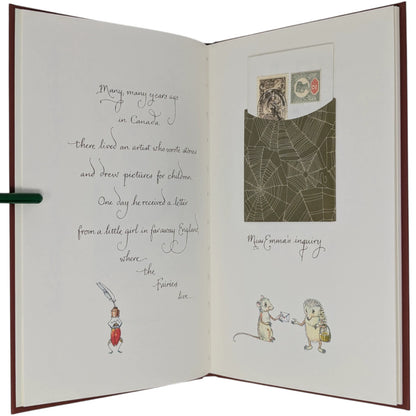 Many, many years ago
in Canada
there lived an artist who wrote stories
and drew pictures for children.
One day he received a letter
from a little girl in faraway England,
where
the
Fairies
live.
Miss Emma's inquiry